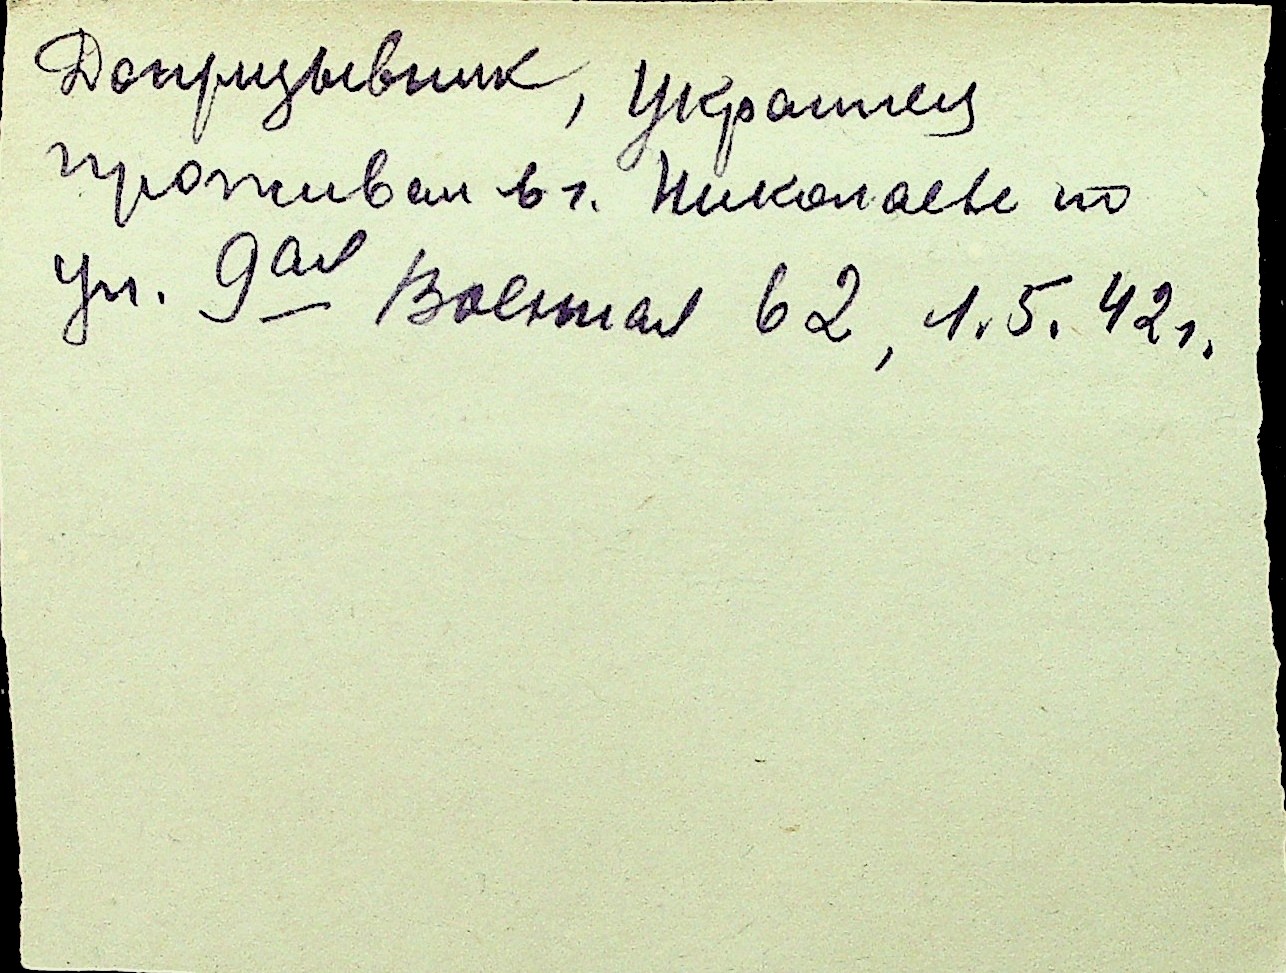 Допризывник, Украинец
проживал в г. Николаеве по
ул. 9ая Военная 62, 1.5.42г.